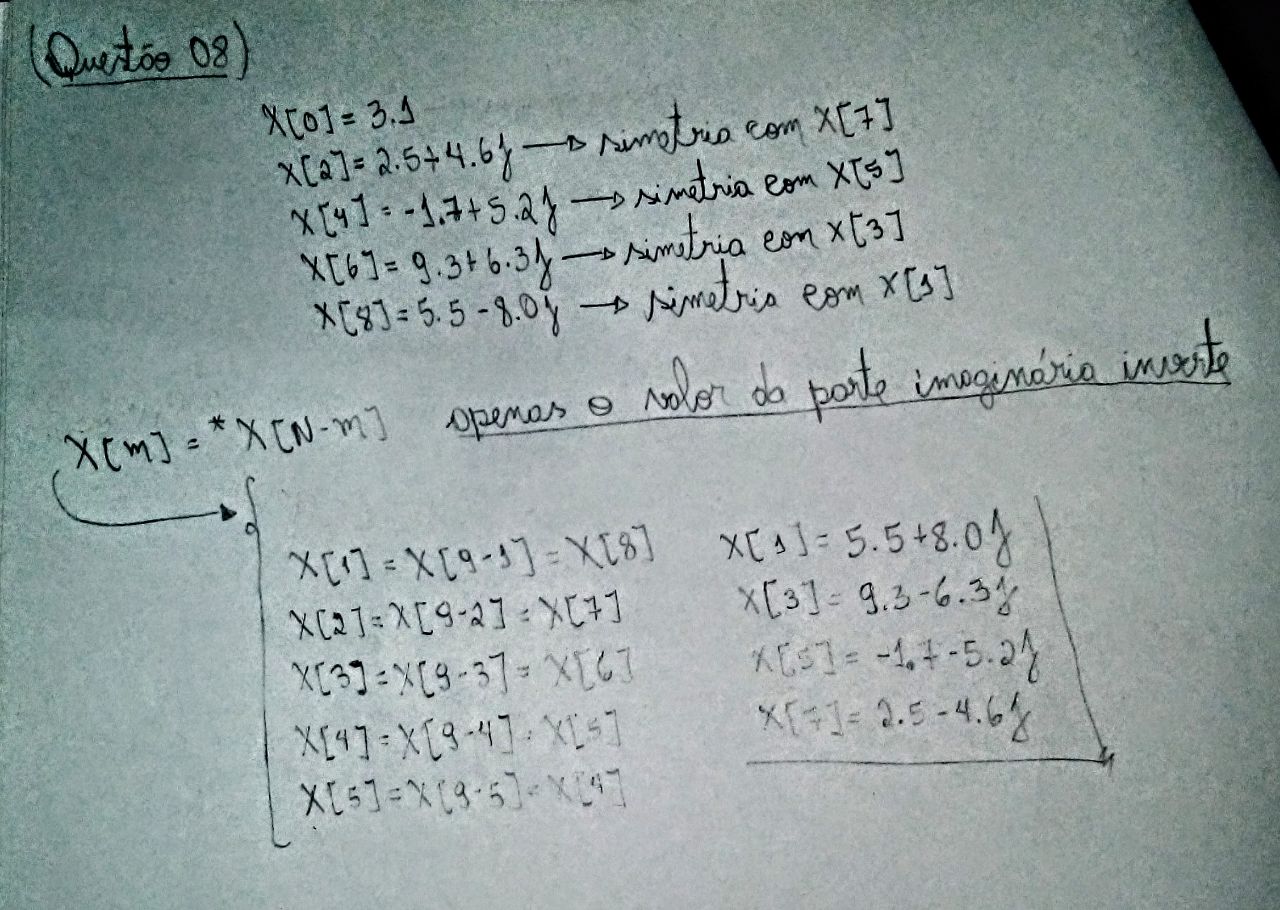 (Questão 08)
X[0] = 3.1
X[2] = 2.5+4.6j → simetria com X[7]
X[4] = -1.7+5.2j → simetria com X[5]
X[6] = 9.3+6.3j → simetria com X[3]
X[8] = 5.5-8.0j → simetria com X[1]
X[m] = *X[N-m] apenas o valor da parte imaginária inverte
X[1] = X[9-1] = X[8] X[1] = 5.5+8.0j
X[2] = X[9-2] = X[7] X[3] = 9.3-6.3j
X[3] = X[9-3] = X[6] X[5] = -1.7-5.2j
X[4] = X[9-4] = X[5] X[7] = 2.5-4.6j
X[5] = X[9-5] = X[4]